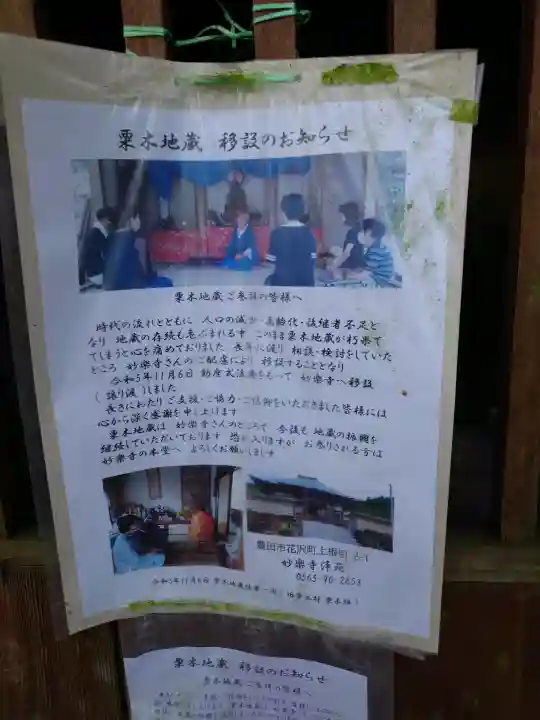 粟木地蔵 移設のお知らせ
粟木地蔵ご参詣の皆様へ
時代の流れとともに 人口の減少・高齢化・後継者不足と
なり 地蔵の存続も危ぶまれる中 このまま粟木地蔵が朽果て
てしまうと心を痛めておりました 長年に渡り 相談・検討をしていた
ところ 妙楽寺さんのご配慮により 移設することとなり
令和5年11月6日 動座式法要をもって 妙楽寺へ移設
(譲り渡)しました
長きにわたり ご支援・ご協力・ご信仰をいただきました皆様には
心から深く感謝を申し上げます
粟木地蔵は 妙楽寺さんのところで 今後も 地蔵の祈祷を
継続していただいております 恐れ入りますが お参りされる方は
妙楽寺の本堂へ よろしくお願いします
豊田市花沢町上根
妙楽寺津苑
0565-90-2658
令和5年11月6日 粟木地蔵
粟木地蔵 移設のお知らせ
粟木地蔵ご参詣の皆様へ